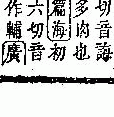 切音誨
多肉也
篇海初
六切音
作輔廣